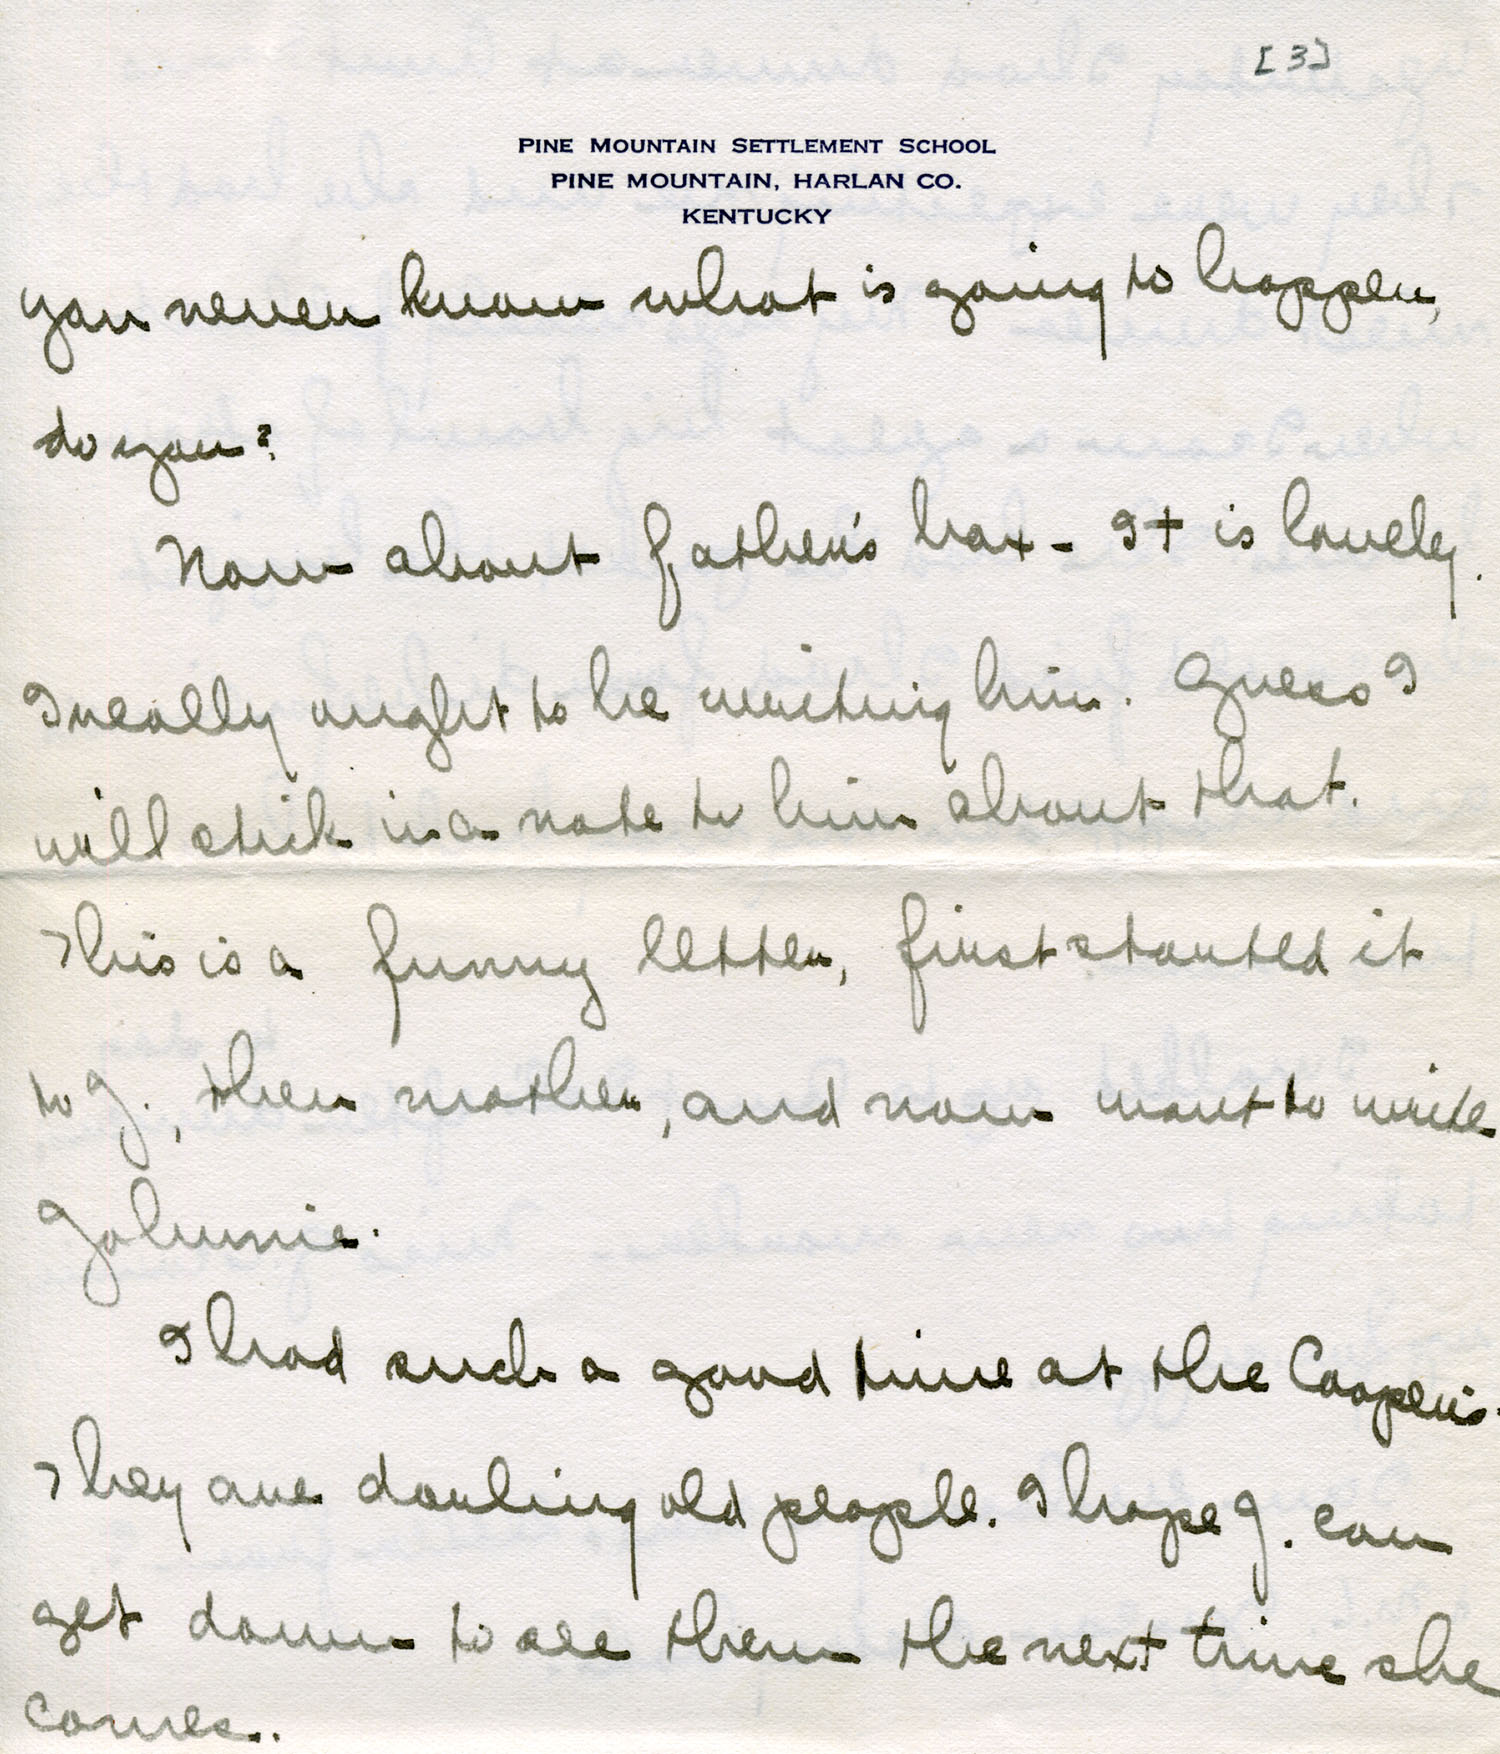 [3]
PINE MOUNTAIN SETTLEMENT SCHOOL
PINE MOUNTAIN, HARLAN CO.
KENTUCKY
you never know what is going to happen,
do you?
Now about father's box - It is lovely.
I really ought to be writing him. Guess I
will stick in a note to him about that.
This is a funny letter, first started it
to J., then mother, and now want to write
Johnnie.
I had such a good time at the Cooper's.
They are darling old people. I hope J. can
get down to see them the next time she
comes..